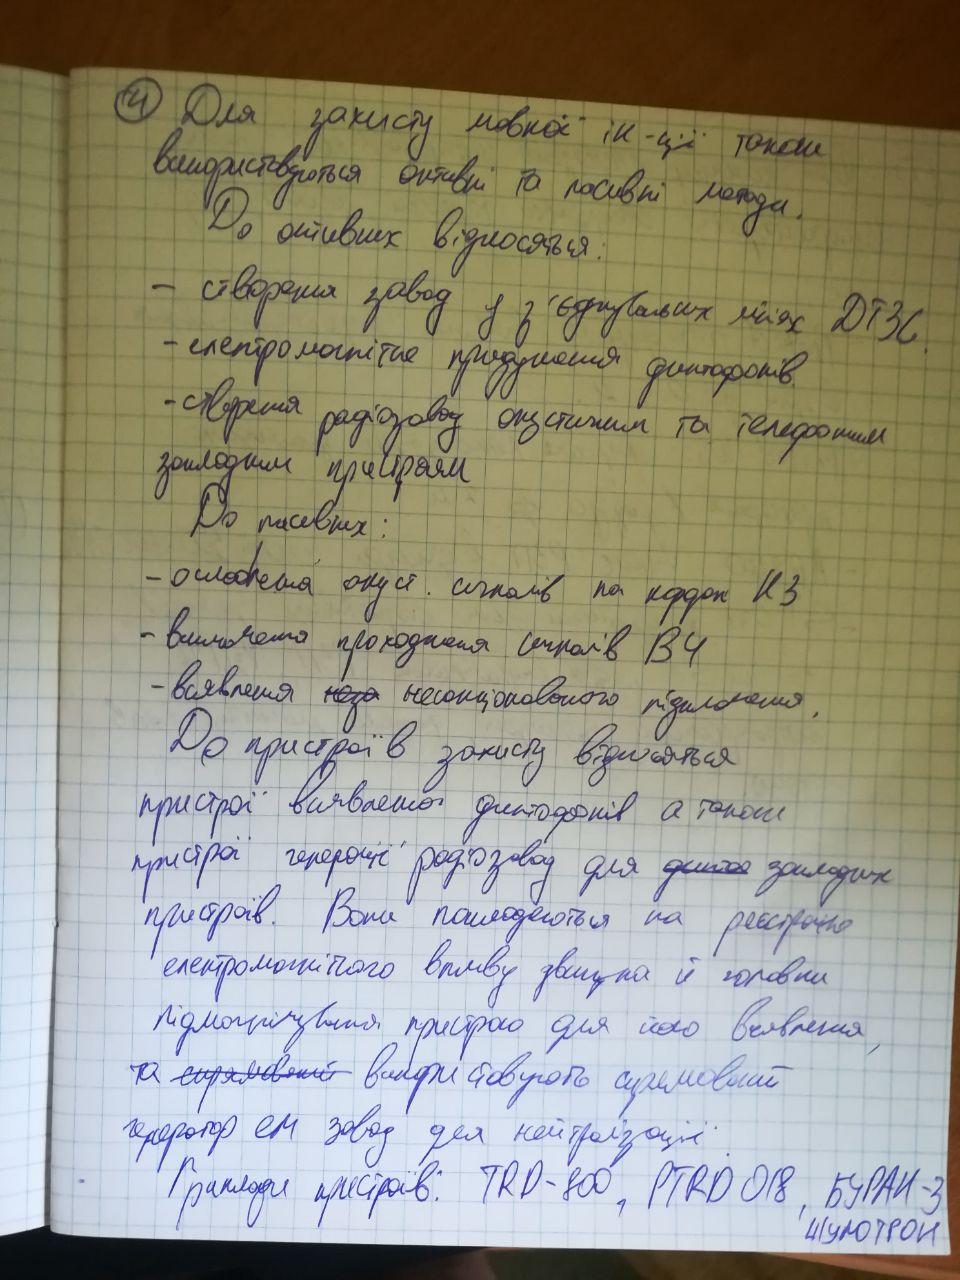 ④ Для захисту мовної ін-ції також
використовуються активні та пасивні методи.
До активних відносяться:
- створення завад у з'єднувальних лініях ДТЗС.
- електромагнітне придушення диктофонів
- створення радіозавад акустичним та телефонним
закладним пристроям
До пасивних:
- ослаблення акуст. сигналів на кордон КЗ
- виключення проходження сигналів ВЧ
- виявлення несанкціонованого підключення.
До пристроїв захисту відносяться
пристрої виявлення диктофонів а також
пристрої генерації радіозавад для закладних
пристроїв. Вони покладаються на
електромагнітного впливу двигуна й головки
підмагнічування пристрою для його виявлення,
та використовують спрямований
генератор ЕМ завад для нейтралізації.
Приклади пристроїв: TRD-800, PTRD 018, БУРАН-3
ШУМОТРОН